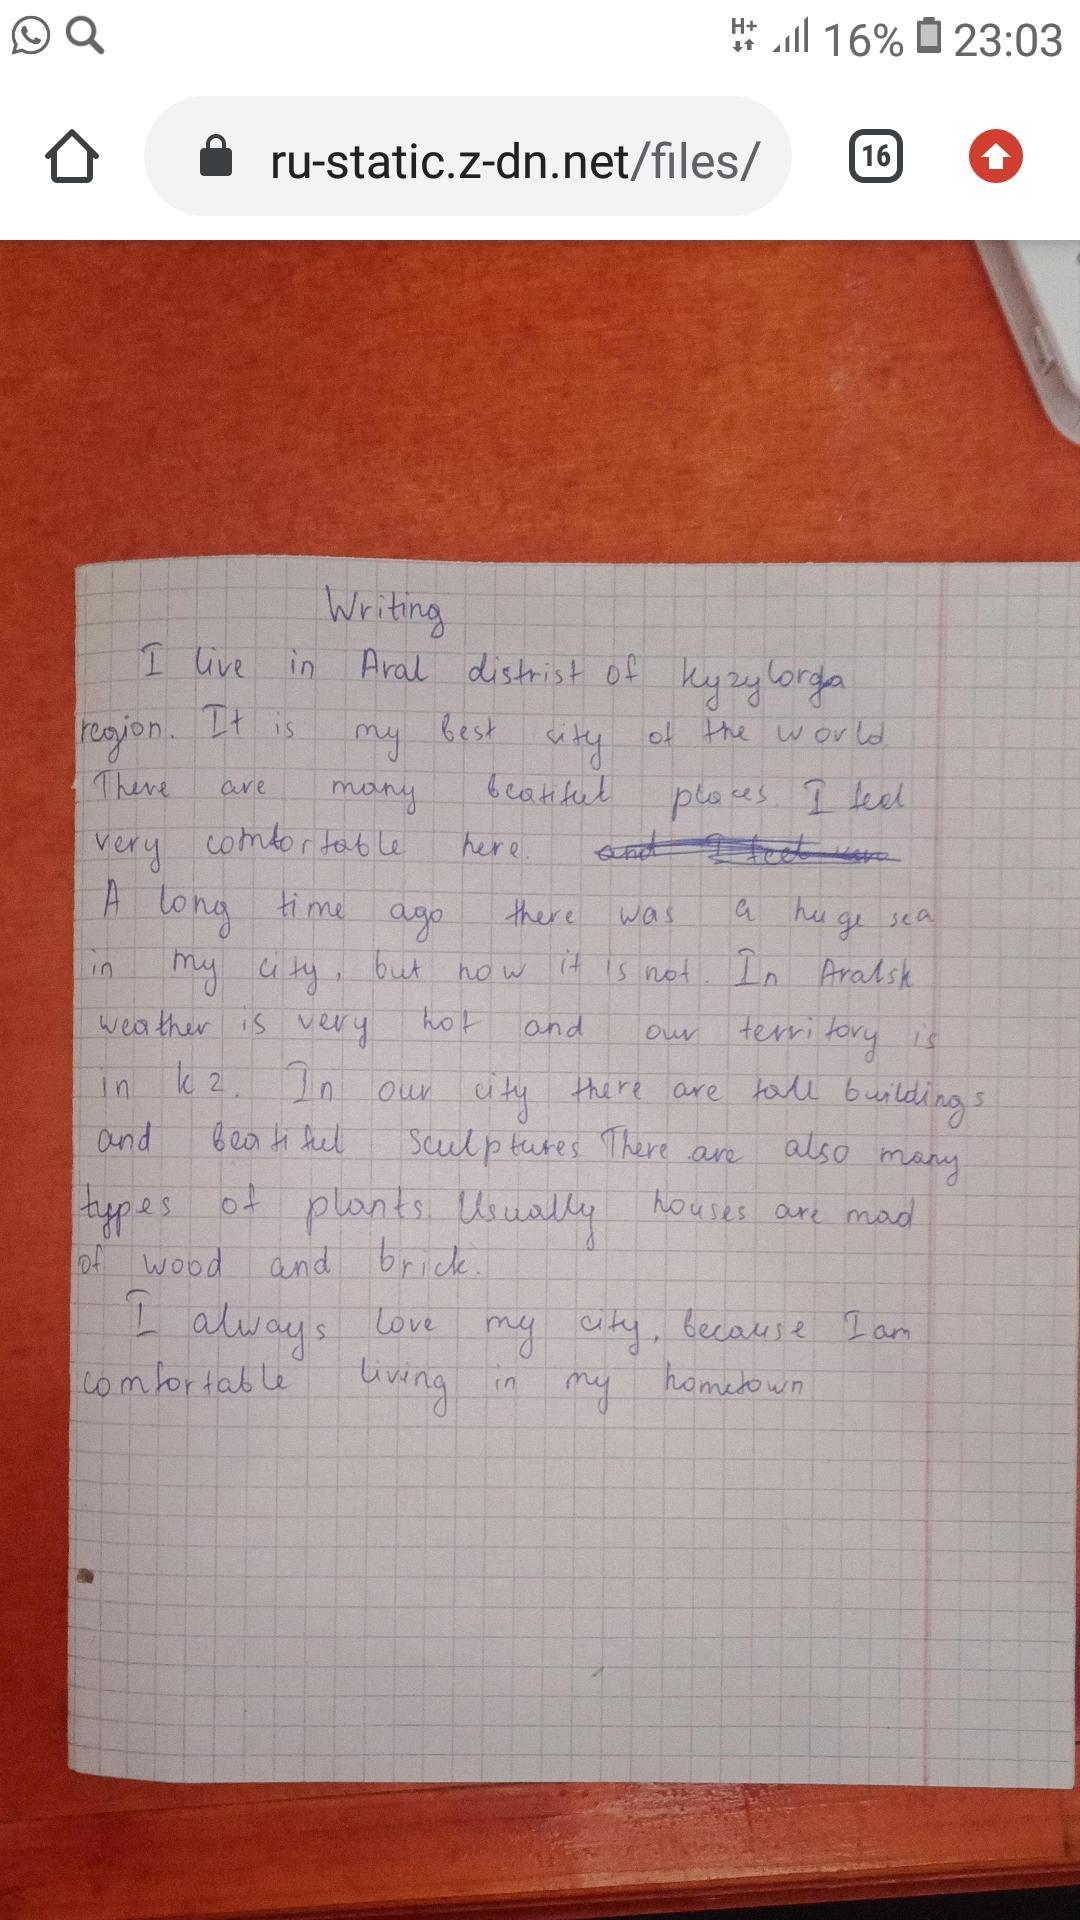 16% 23:03
ru-static.z-dn.net/files/ 16
Writing
I live in Aral distrist of Kyzylorda
region. It is my best city of the world
There are many beatiful places. I feel
very comfortable here. and I feel
A long time ago there was a huge sea
in my city, but now it is not. In Aralsk
weather is very hot and our territory is
in kz. In our city there are tall buildings
and beatiful sculptures There are also many
types of plants. Usually houses are mad
of wood and brick.
I always love my city, because I am
comfortable living in my hometown